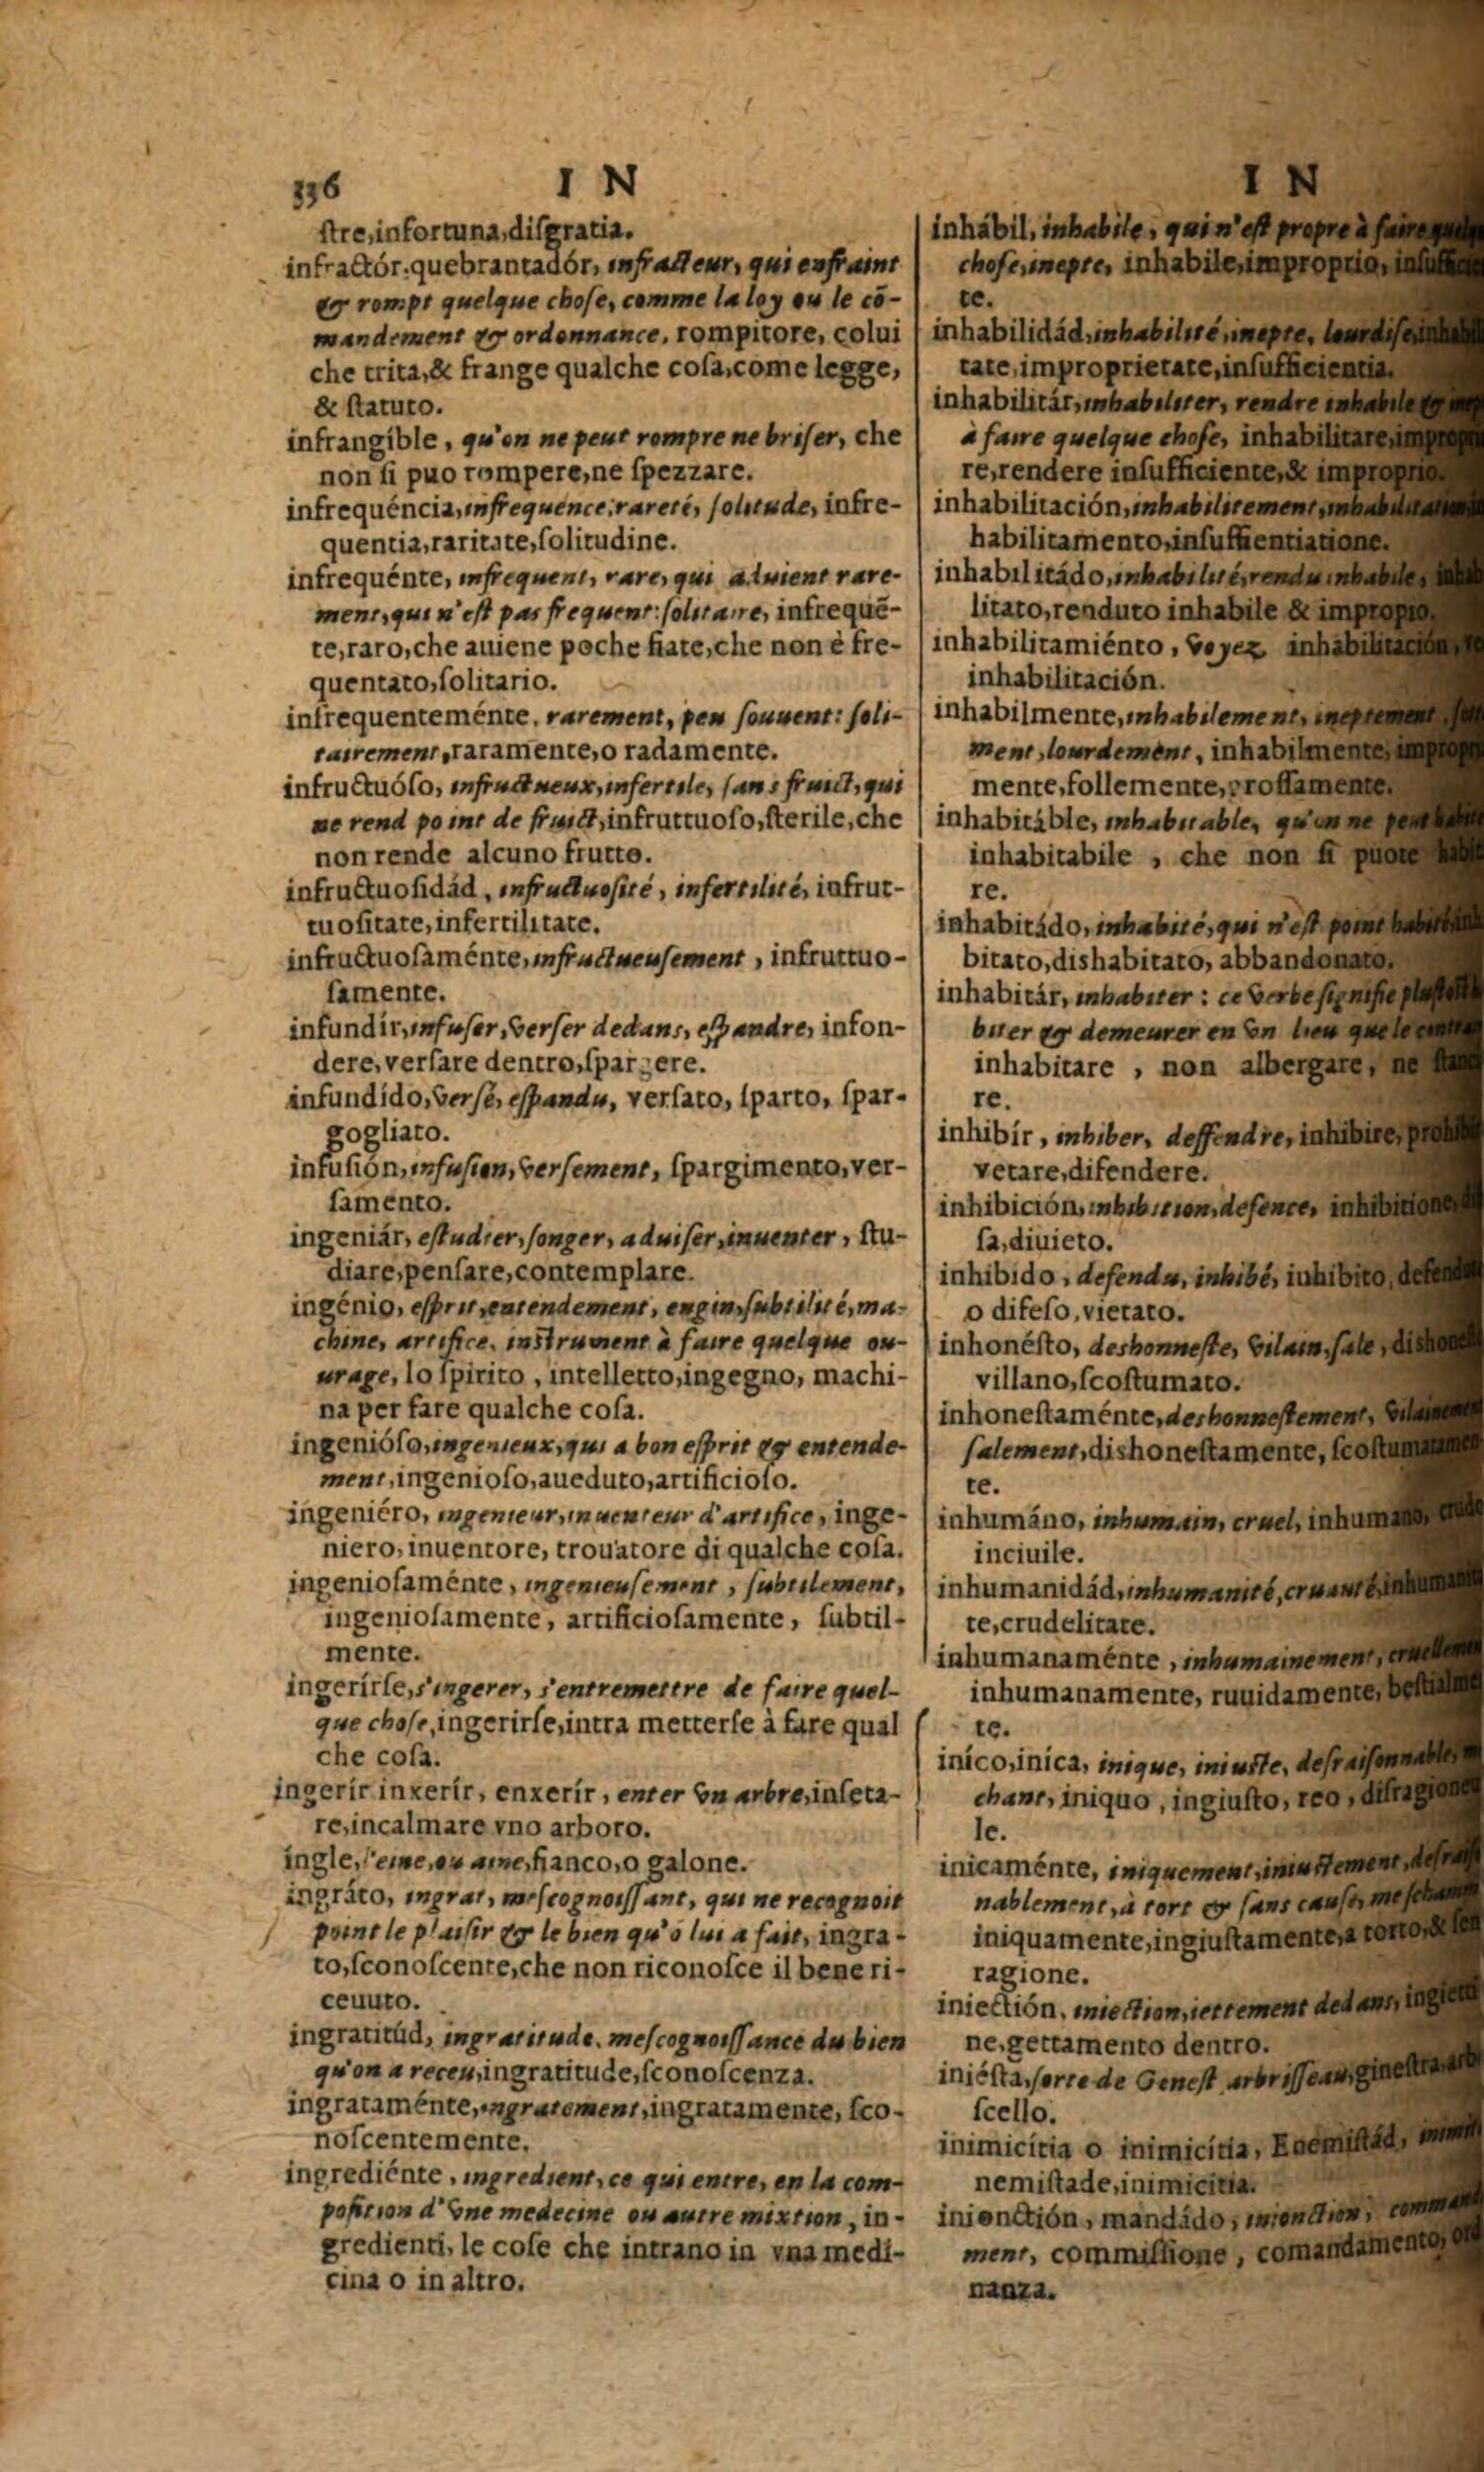 336
I N
ſtre,infortuna,diſgratia.
infractór.quebrantadór, infracteur, qui enfraint
& rompt quelque choſe, comme la loy ou le cō-
mandement & ordonnance, rompitore, colui
che trita,& frange qualche coſa,come legge,
& ſtatuto.
infrangíble, qu'on ne peut rompre ne briſer, che
non ſi puo rompere,ne ſpezzare.
infrequéncia,infrequence,rareté, ſolitude, infre-
quentia,raritate,ſolitudine.
infrequénte, infrequent, rare, qui aduient rare-
ment,qui n'eſt pas frequent:ſolitaire, infrequē-
te,raro,che auiene poche fiate,che non è fre-
quentato,ſolitario.
infrequenteménte, rarement, peu ſouuent: ſoli-
tairement,raramente,o radamente.
infructuóſo, infructueux,infertile, ſans fruict, qui
ne rend point de fruict,infruttuoſo,ſterile,che
non rende alcuno frutto.
infructuoſidád, infructuoſité, infertilité, infrut-
tuoſitate,infertilitate.
infructuoſaménte,infructueuſement, infruttuo-
ſamente.
infundír,infuſer,verſer dedans, eſpandre, infon-
dere,verſare dentro,ſpargere.
infundído,verſé, eſpandu, verſato, ſparto, ſpar-
gogliato.
infuſión,infuſion,verſement, ſpargimento,ver-
ſamento.
ingeniár, eſtudier,ſonger, aduiſer,inuenter, ſtu-
diare,penſare,contemplare.
ingénio, eſprit,entendement, engin,ſubtilité,ma-
chine, artifice, inſtrument à faire quelque ou-
urage, lo ſpirito, intelletto,ingegno, machi-
na per fare qualche coſa.
ingenióſo,ingenieux,qui a bon eſprit & entende-
ment,ingenioſo,aueduto,artificioſo.
ingeniéro, ingenieur,inuenteur d'artifice, inge-
niero,inuentore, trouatore di qualche coſa.
ingenioſaménte, ingenieuſement, ſubtilement,
ingenioſamente, artificioſamente, ſubtil-
mente.
ingerírſe,s'ingerer, s'entremettre de faire quel-
que choſe,ingerirſe,intra metterſe à fare qual
che coſa.
ingerír inxerír, enxerír, enter vn arbre,inſeta-
re,incalmare vno arboro.
íngle,l'eine,ou aine,fianco,o galone.
ingráto, ingrat, meſcognoiſſant, qui ne recognoit
point le plaiſir & le bien qu'ō lui a fait, ingra-
to,ſconoſcente,che non riconoſce il bene ri-
ceuuto.
ingratitúd, ingratitude, meſcognoiſſance du bien
qu'on a receu,ingratitude,ſconoſcenza.
ingrataménte,ingratement,ingratamente, ſco-
noſcentemente.
ingrediénte, ingredient, ce qui entre, en la com-
poſition d'vne medecine ou autre mixtion, in-
gredienti, le coſe che intrano in vna medi-
cina o in altro.
I N
inhábil, inhabile, qui n'eſt propre à faire
choſe,inepte, inhabile,improprio,
te.
inhabilidád,inhabilité,inepte, lourdiſe,
tate,improprietate,inſufficientia.
inhabilitár,inhabiliter, rendre inhabile &
à faire quelque choſe, inhabilitare,
re,rendere inſufficiente,& improprio.
inhabilitación,inhabilitement,
habilitamento,inſuffientiatione.
inhabilitádo,inhabilité,rendu inhabile,
litato,renduto inhabile & impropio.
inhabilitamiénto, voyez inhabilitación,
inhabilitación.
inhabilmente,inhabilement, ineptement,
ment,lourdement, inhabilmente,
mente,follemente,groſſamente.
inhabitáble, inhabitable, qu'on ne peut
inhabitabile, che non ſi puote
re.
inhabitádo, inhabité,qui n'eſt point
bitato,dishabitato, abbandonato.
inhabitár, inhabiter: ce verbe ſignifie
biter & demeurer en vn lieu que le
inhabitare, non albergare, ne
re.
inhibír, inhiber, deffendre, inhibire,
vetare,difendere.
inhibición,inhibition,defence, inhibitione,
ſa,diuieto.
inhibido, defendu, inhibé, inhibito,
o difeſo,vietato.
inhonéſto, deshonneſte, vilain,ſale,
villano,ſcoſtumato.
inhoneſtaménte,deshonneſtement,
ſalement,dishoneſtamente,
te.
inhumáno, inhumain, cruel, inhumano,
inciuile.
inhumanidád,inhumanité,cruauté,
te,crudelitate.
inhumanaménte, inhumainement,
inhumanamente, ruuidamente,
te.
iníco,iníca, inique, iniuſte, deſraiſonnable,
chant, iniquo, ingiuſto, reo,
le.
inicaménte, iniquement,iniuſtement,
nablement,à tort & ſans cauſe,
iniquamente,ingiuſtamente,a torto,&
ragione.
iniectión, iniection,iettement dedans,
ne,gettamento dentro.
iniéſta,ſorte de Geneſt arbriſſeau,gineſtra,
ſcello.
inimicítia o inimicítia, Enemiſtád,
nemiſtade,inimicitia.
inionctión, mandádo, inionction,
ment, commiſſione, comandamento,
nanza.